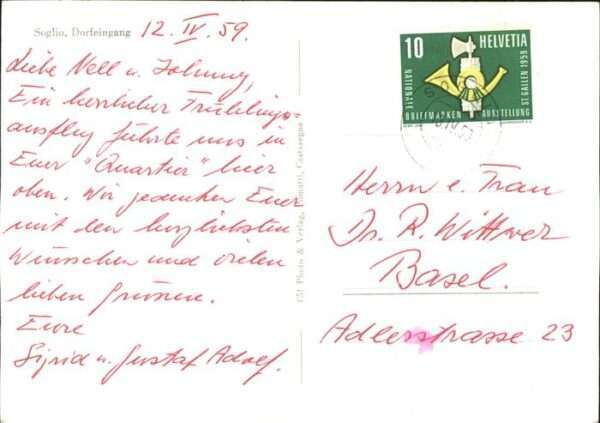 Soglio, Dorfeingang
12. IV. 59.
Liebe Nell u. Johnny,
Ein herrlicher Frühlings
ausflug führte uns in
Euer "Quartier" hier
oben. Wir gedenken Euer
mit den herzlichsten
Wünschen und vielen
lieben Grüssen.
Eure
Sigrid u. Gustaf Adolf.
Photo & Verlag, Castasegna
10 HELVETIA
NATIONALE
BRIEFMARKEN AUSSTELLUNG
ST. GALLEN 1959
Herrn e. Frau
Dr. R. Wittwer
Basel.
Adlerstrasse 23